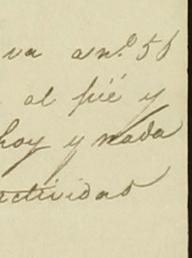 va a n.º 56
al pié y
hoy y nada
actividad